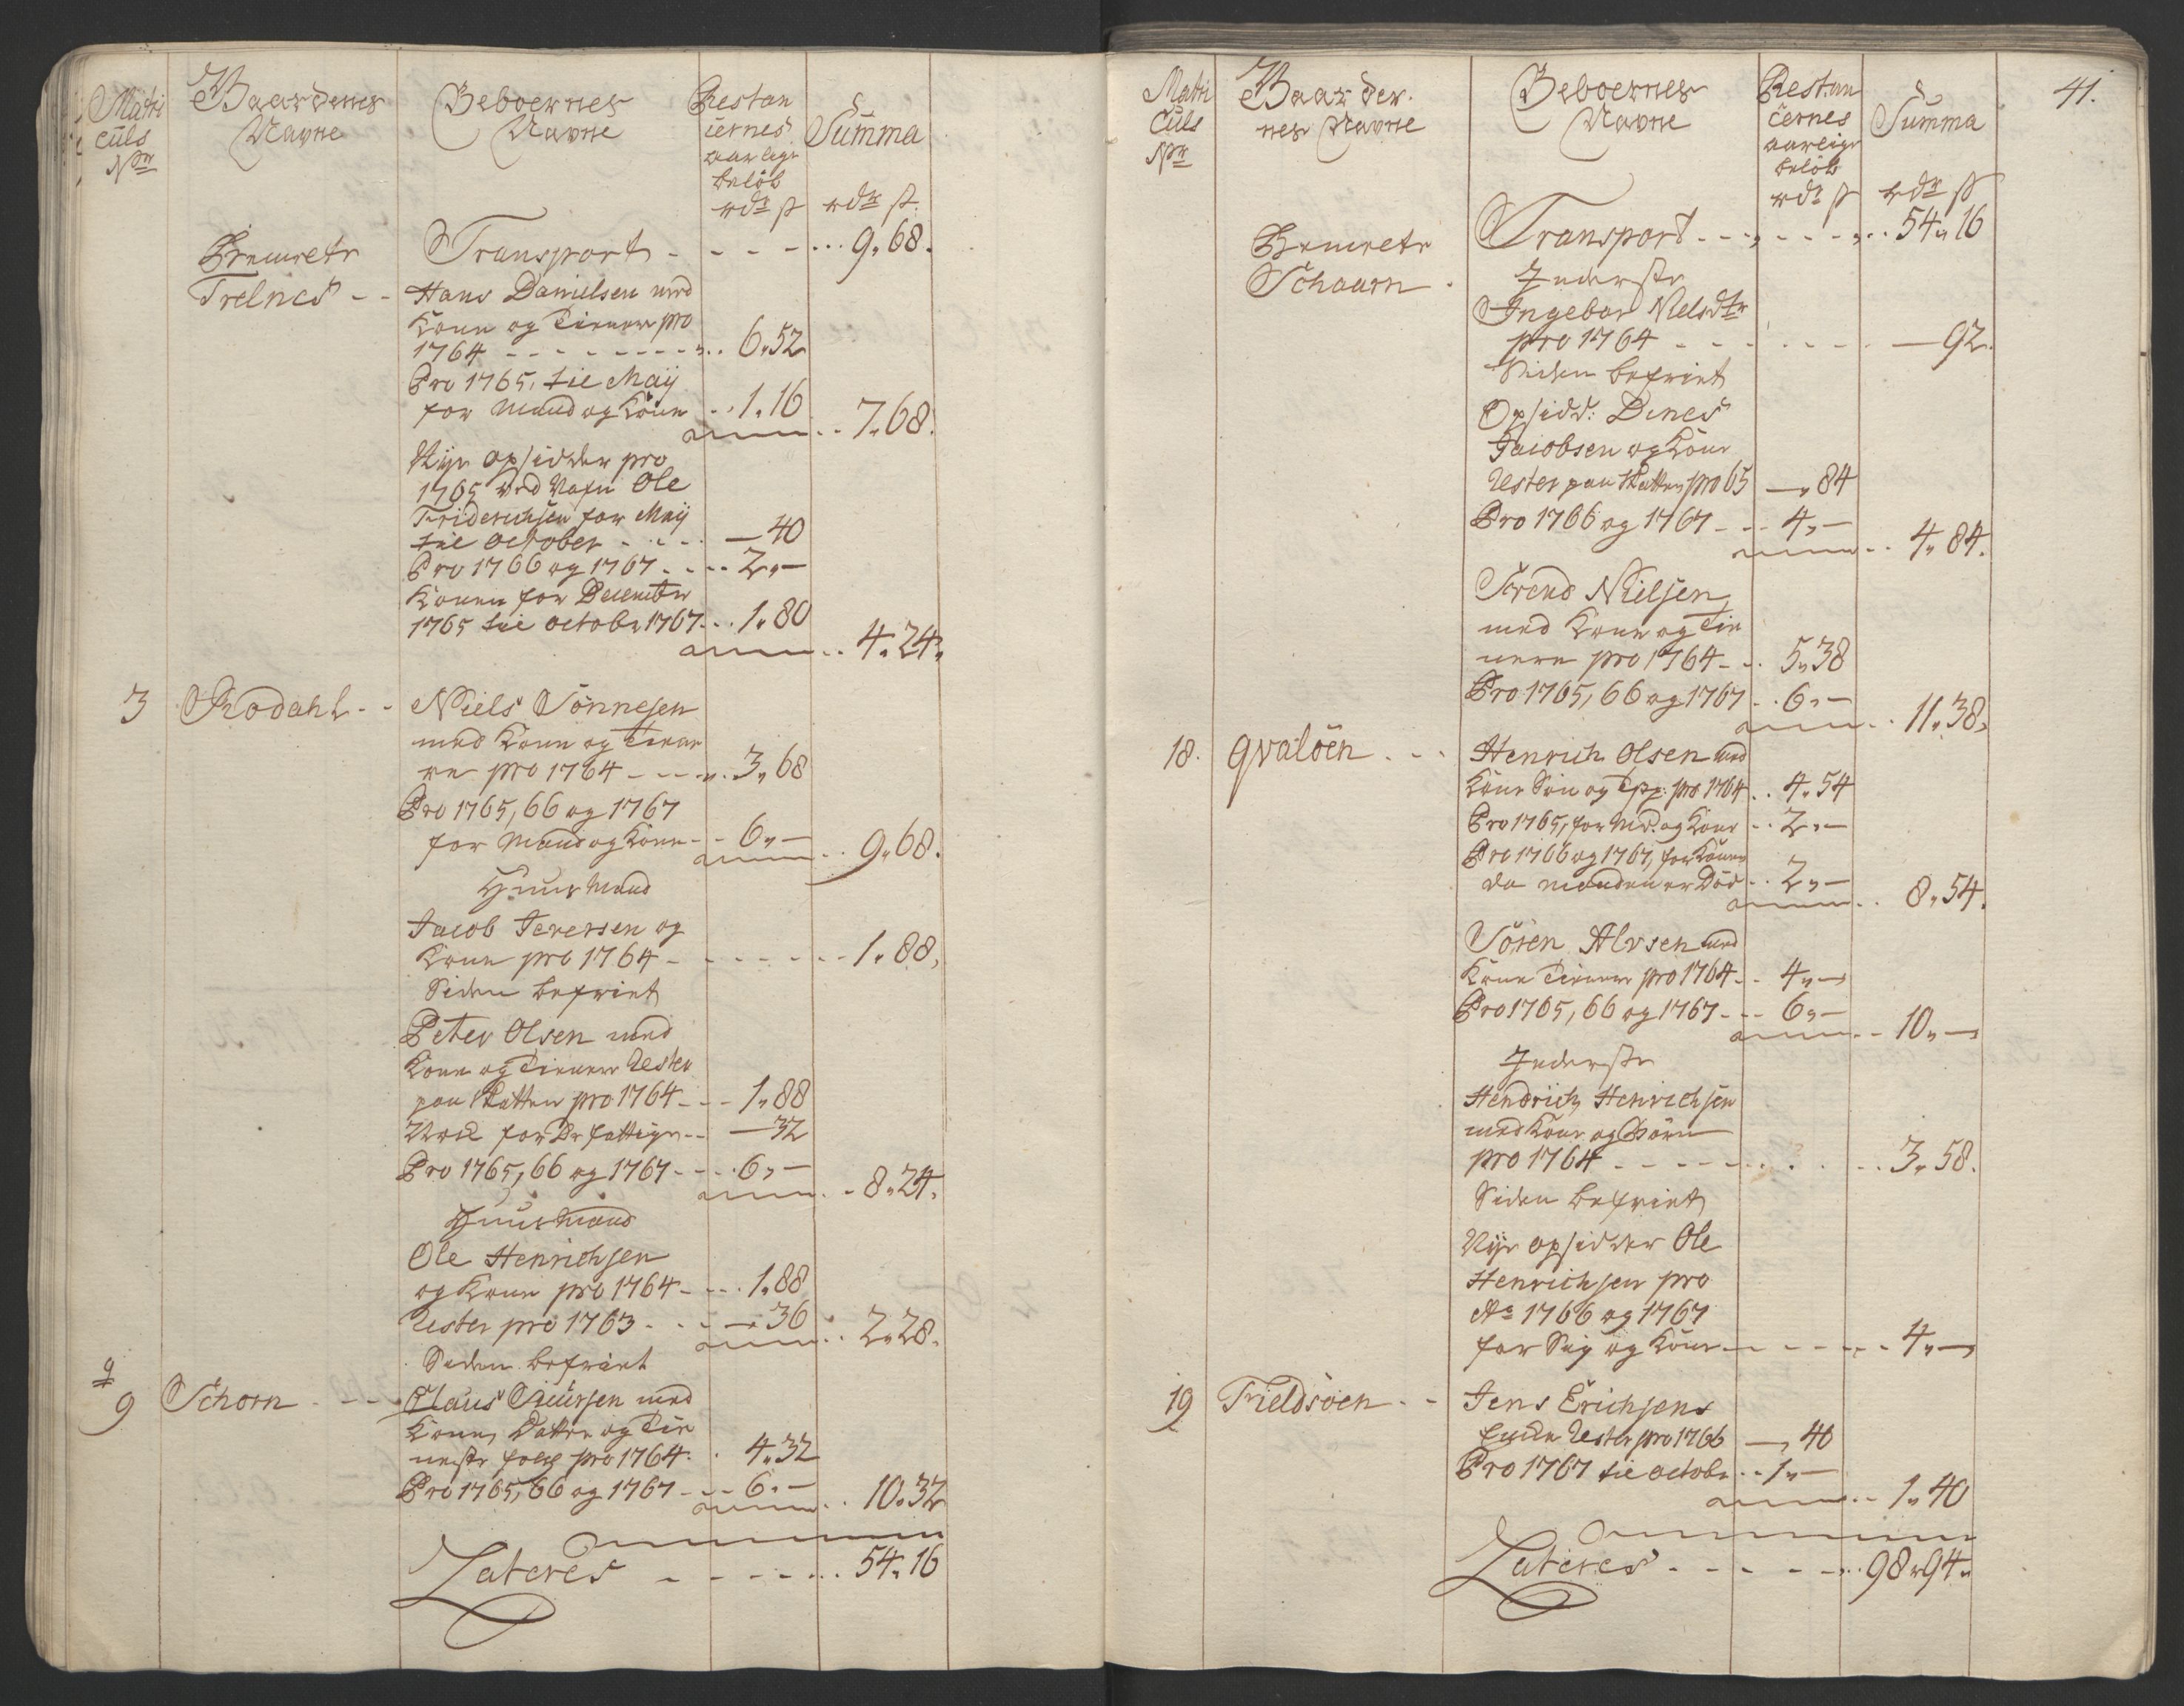 Matri
culs
Nr
Gaardenes
Navne
Beboernes
Navne
Restan
cernes
aarlige
beløb
rdr ß
Summa
rdr ß
Benevnte Transport - - - - ... 9. 68.
Trelnes - - Hans Danielsen med
Kone og Tienere pro
1764 - - - - - - - - 6. 52
Pro 1765, til Maij
for Mand og Kone .. 1. 16 .. 7. 68.
Nye opsidder pro
1765 ved Nafn Ole
Friderichsen for Maij
til October - - - - — 40
Pro 1766 og 1767 - - - - 2. —
Konen for December
1765 til octobr 1767 - - 1. 80 .. 4. 24.
3 Rodahl - - Niels Sönnesen
med Kone og Tiene
re pro 1764 - - - - 3. 68
Pro 1765, 66 og 1767
for Mand og Kone - - 6. — .. 9. 68.
Huusmand
Jacob Iversen og
Kone pro 1764 - - - - - - - 1. 88.
Siden befriet
Peter Olsen med
Kone og Tienere Rester
paa Skatten pro 1764 - - - 1. 88
for de fattige - - — 32
Pro 1765, 66 og 1767 - - - - 6. — .. 8. 24.
Huusmand
Ole Henrichsen
og Kone pro 1764 - - - . 1. 88
Rester pro 1763 - - - — 36 .. 2. 28.
Siden befriet
9
9 Schorn - - - Claus med
Kone, Datter og Tie
neste folck pro 1764 . . 4. 32
Pro 1765, 66 og 1767 - - - 6. — .. 10. 32
Lateres - - - - - ... 54. 16
41.
Matri
culs
Nr
Gaarder
nes Navne
Beboernes
Navne
Restan
cernes
aarlige
beløb
rdr ß
Summa
rdr ß
Benevnte Transport - - - - - - - - . 54. 16
Schaarn . Inderste
Ingebor Nielsdtr
pro 1764 - - - - - - — 92.
Siden befriet
Opsidd: Dines
Jacobsen og Kone
Rester paa Skatten pro 65 — 84
Pro 1766 og 1767 - - - 4. — .. 4. 84.
Trend Nielsen
med Kone og Tie
nere pro 1764 - . 5. 38
Pro 1765, 66 og 1767 . . 6. — .. 11. 38.
18. Qvaløen . - - Henrich Olsen med
Kone Søn og pro 1764 . . 4. 54
Pro 1765, for Md. og Kone - . 2. —
Pro 1766 og 1767, for Konen
da manden er Død - . 2. — .. 8. 54.
Sören Alvsen med
Kone Tienere pro 1764 - . 4. —
Pro 1765, 66 og 1767 - - - 6. — .. 10. —
Inderste
Hendrich Henrichsen
med Kone og Børn
pro 1764 - - - - - - . . 3. 58.
Siden befriet
Nye opsidder Ole
Henrichsen pro
Ao 1766 og 1767
for Sig og Kone - - - - - - - 4. —
19 Fieldsøen - - Jens Erichsens
Encke Rester pro 1766 — 40
Pro 1767 til octobr - . 1. — .. 1. 40
Lateres - - - - - - . . 98. 94.